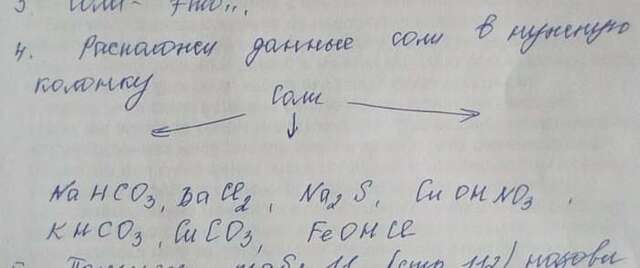 4. Расположи данные соли в нужную
колонку
Соли
NaHCO₃, BaCl₂, Na₂S, CuOHNO₃,
KHCO₃, CuCO₃, FeOHCl